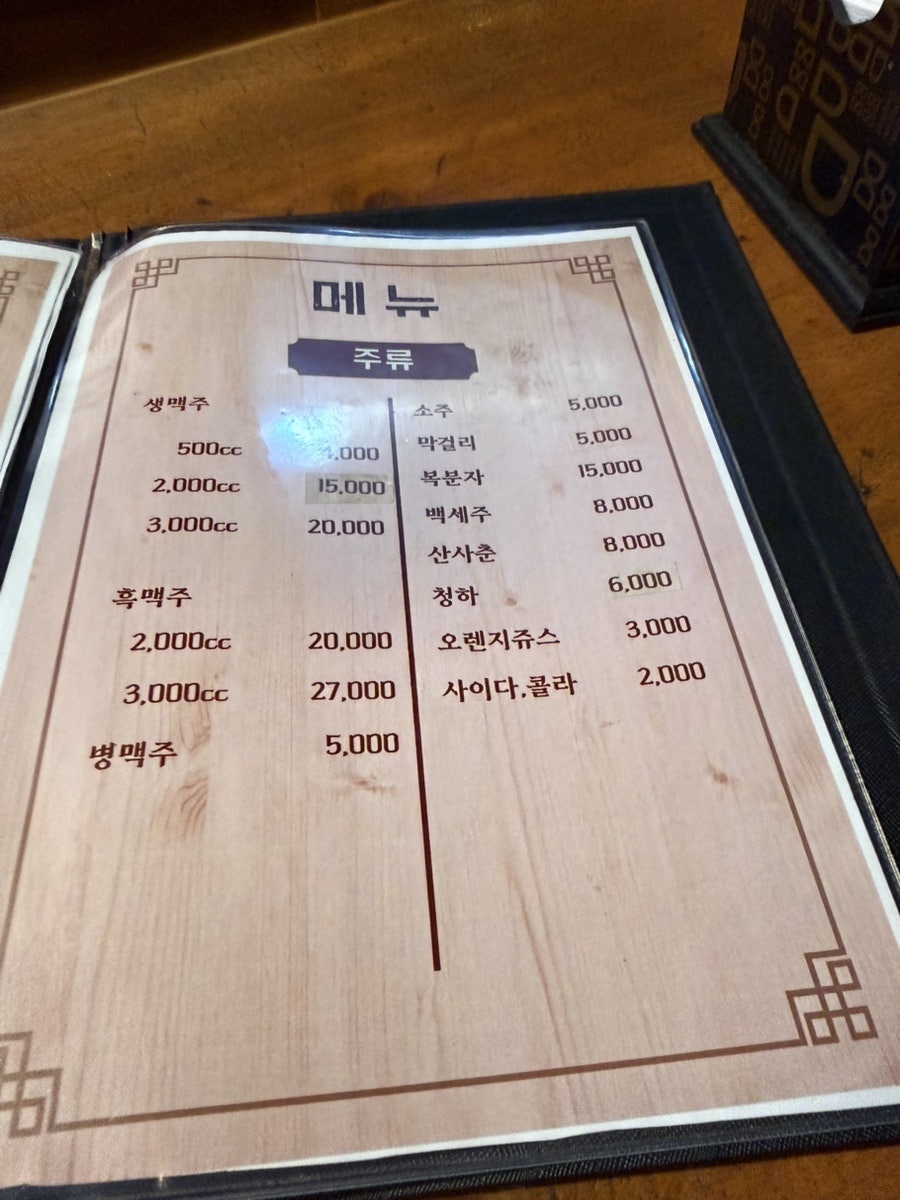 메뉴
주류
생맥주
500cc 4,000
2,000cc 15,000
3,000cc 20,000
흑맥주
2,000cc 20,000
3,000cc 27,000
병맥주 5,000
소주 5,000
막걸리 5,000
복분자 15,000
백세주 8,000
산사춘 8,000
청하 6,000
오렌지쥬스 3,000
사이다,콜라 2,000